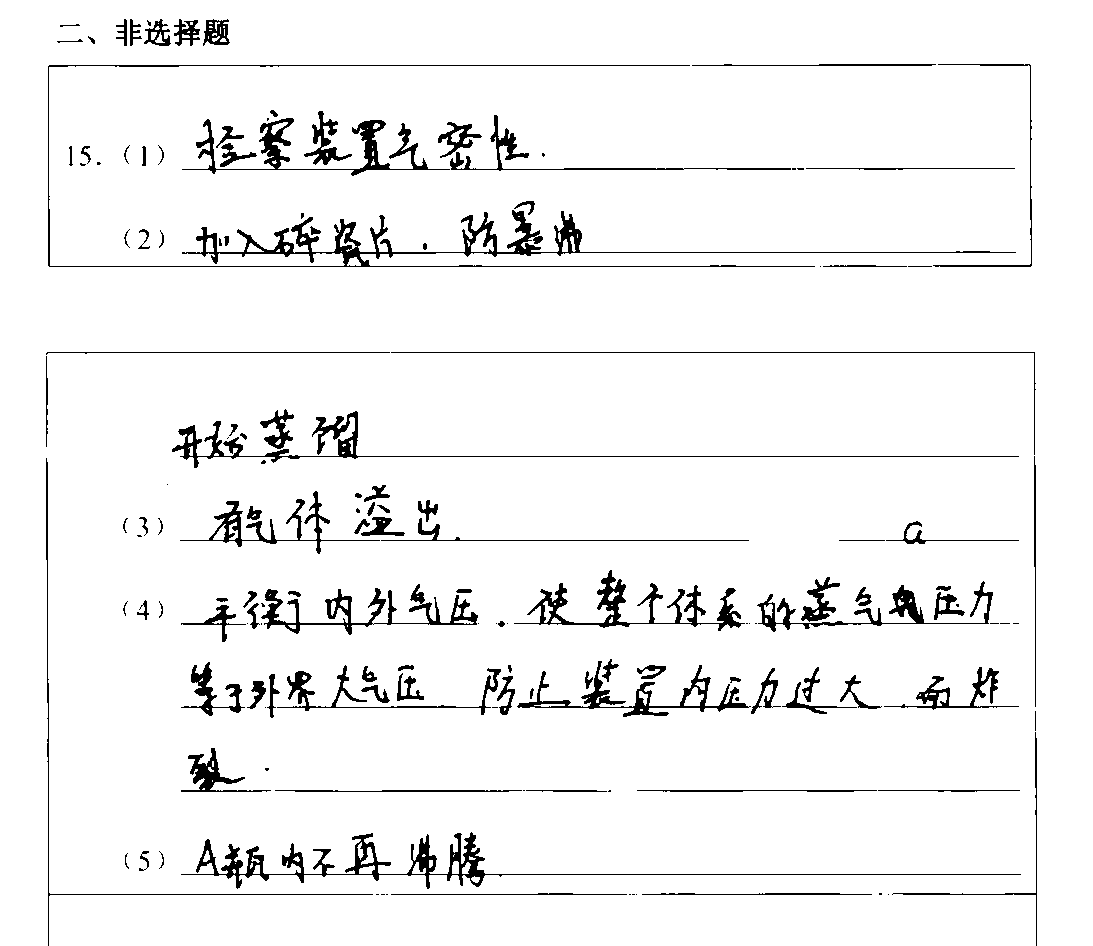 二、非选择题
15.（1）检察装置气密性.
（2）加入碎瓷片. 防暴沸
开始蒸馏
（3）有气体溢出. a
（4）平衡于内外气压. 使整个体系的蒸气压力
等于外界大气压 防止装置内压力过大.而炸
裂.
（5）A瓶内不再沸腾.